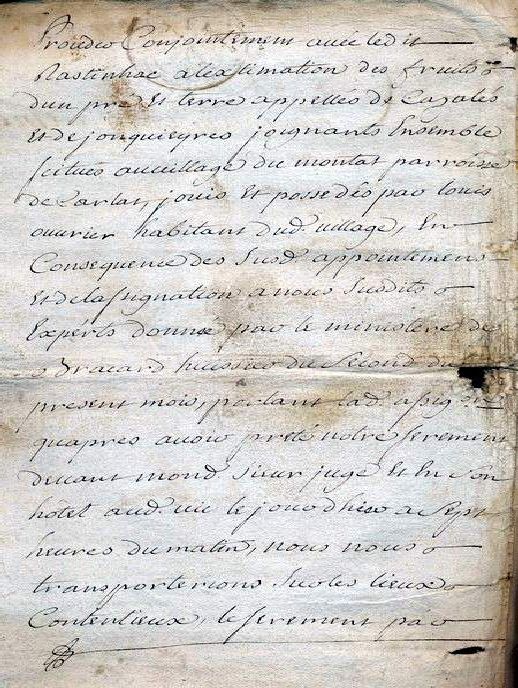 Proceder Conjointement avec ledit
Rastinhac a lestimation des fruits
dun pré Et terre appellés de Cazalés
Et de jonquieyres joignants Ensemble
scitués au village du montat parroisse
de Carlat, jouis Et possedés par louis
ouvrier habitant dud. village, En
Consequence des Susd. appointemens
Et de lassignation a nous Susdits
Experts donnée par le ministere de
Bracard huissier du Second du
present mois, portant lad. assig.on
quapres avoir preté notre serement
devant mond. sieur juge Et En Son
hôtel aud. vic le jour dhier a Sept
heures du matin, nous nous
transporterions Sur les lieux
Contentieux, le serement par